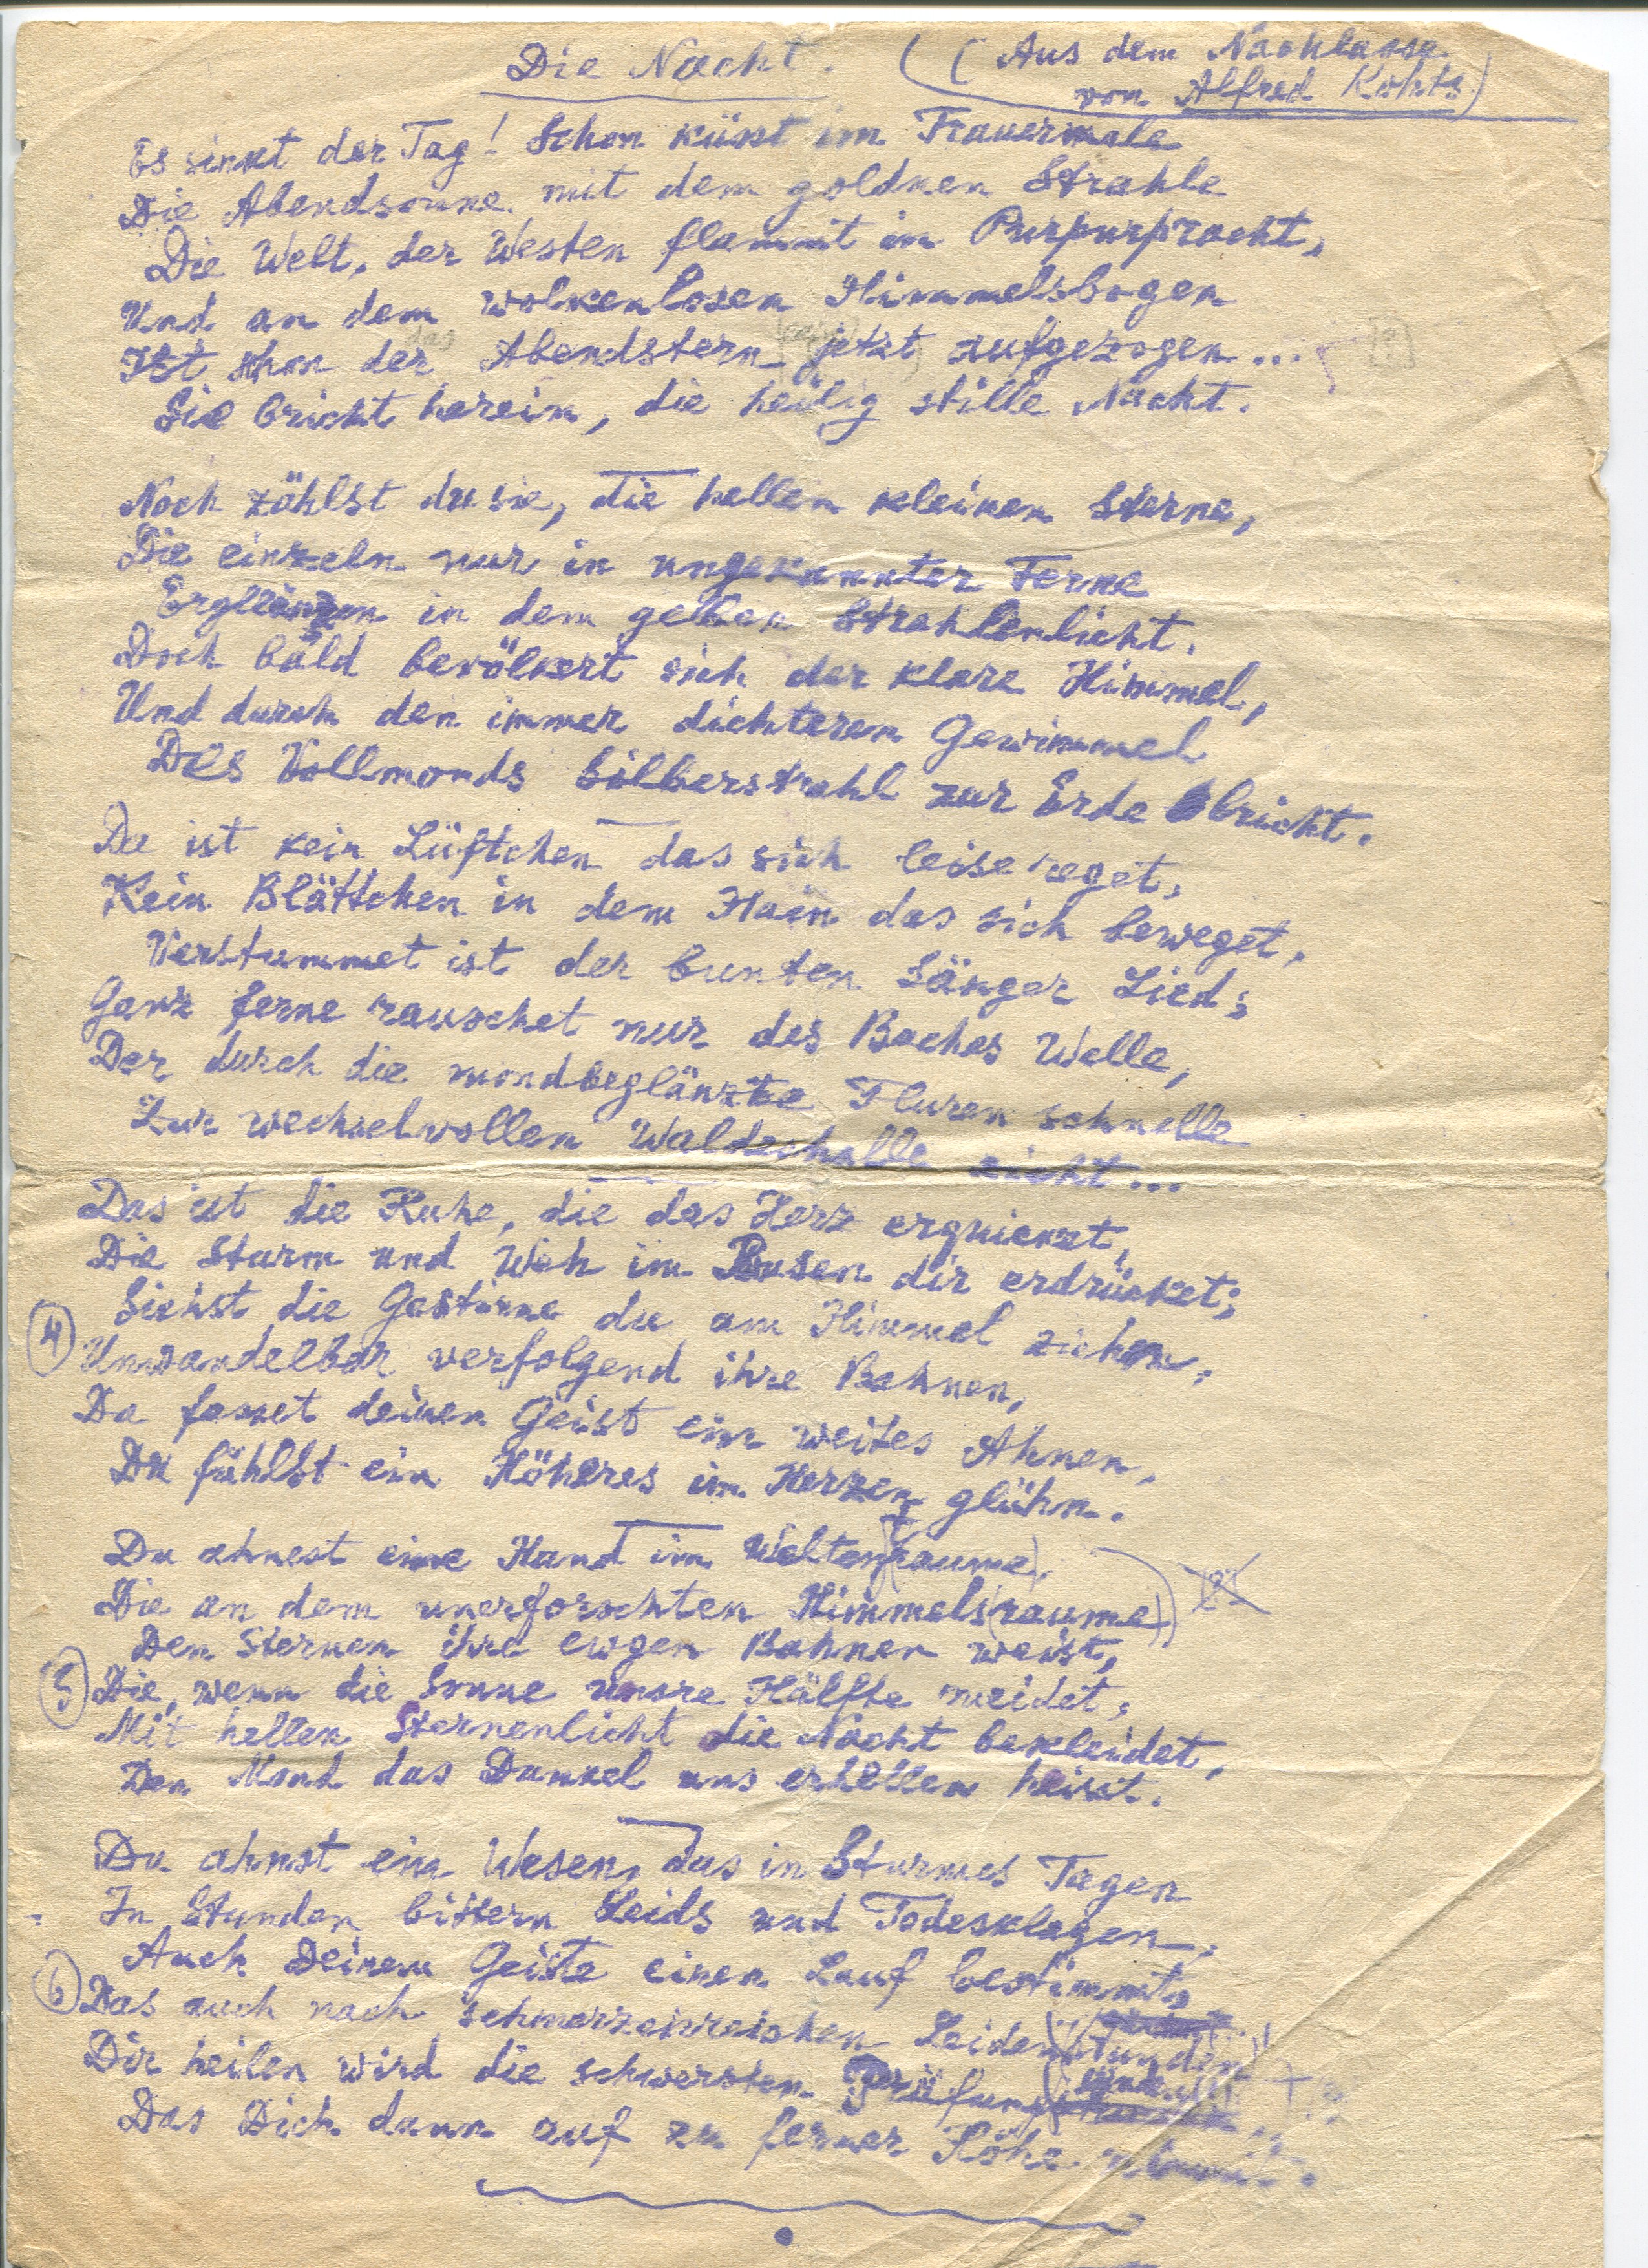 Die Nacht.
(Aus dem Nachlasse
von Alfred Kohts)
Es sinkt der Tag! Schon küsst im Trauermale
Die Abendsonne mit dem goldnen Strahle
Die Welt, der Westen flammt in Purpurpracht,
Und an dem wolkenlosen Himmelsbogen
Ist schon der Abendstern jetzt aufgezogen...
das
[?]
Sie bricht herein, die heilig stille Nacht.
Noch zählst du sie, die hellen kleinen Sterne,
Die einzeln nur in ungekannter Ferne
Erglänzen in dem gelben Strahlenlicht.
Doch bald bevölkert sich der klare Himmel,
Und durch den immer dichteren Gewimmel
Des Vollmonds Silberstrahl zur Erde bricht.
Da ist kein Lüftchen das sich leise reget,
Kein Blättchen in dem Hain das sich beweget,
Verstummet ist der bunten Sänger Lied;
Ganz ferne rauschet nur des Baches Welle,
Der durch die mondbeglänzte Fluren schnelle
Zur wechselvollen Waldeshalle zieht...
Das ist die Ruhe, die das Herz erquicket,
Die Sturm und Weh im Busen dir erdrücket;
Siehst die Gestirne du am Himmel ziehen,
④ Unwandelbar verfolgend ihre Bahnen,
Da fasset deinen Geist ein weites Ahnen,
Du fühlst ein Höheres im Herzen glühn.
Du ahnest eine Hand im Welten(raume),
Die an dem unerforschten Himmels(raume)
[?]
Den Sternen ihre ewgen Bahnen weist,
⑤ Die, wenn die Sonne unsre Hälfte meidet,
Mit hellen Sternenlicht die Nacht bekleidet,
Den Mond das Dunkel uns erhellen heisst.
Du ahnst ein Wesen, das in Sturmes Tagen
In Stunden bittern Leids und Todesklagen,
Auch Deinem Geiste einen Lauf bestimmt,
⑥ Das auch nach schmerzenreichen Leidens(stunden)
Dir heilen wird die schwersten Prüfungs
Das Dich dann auf zu ferner Höhe